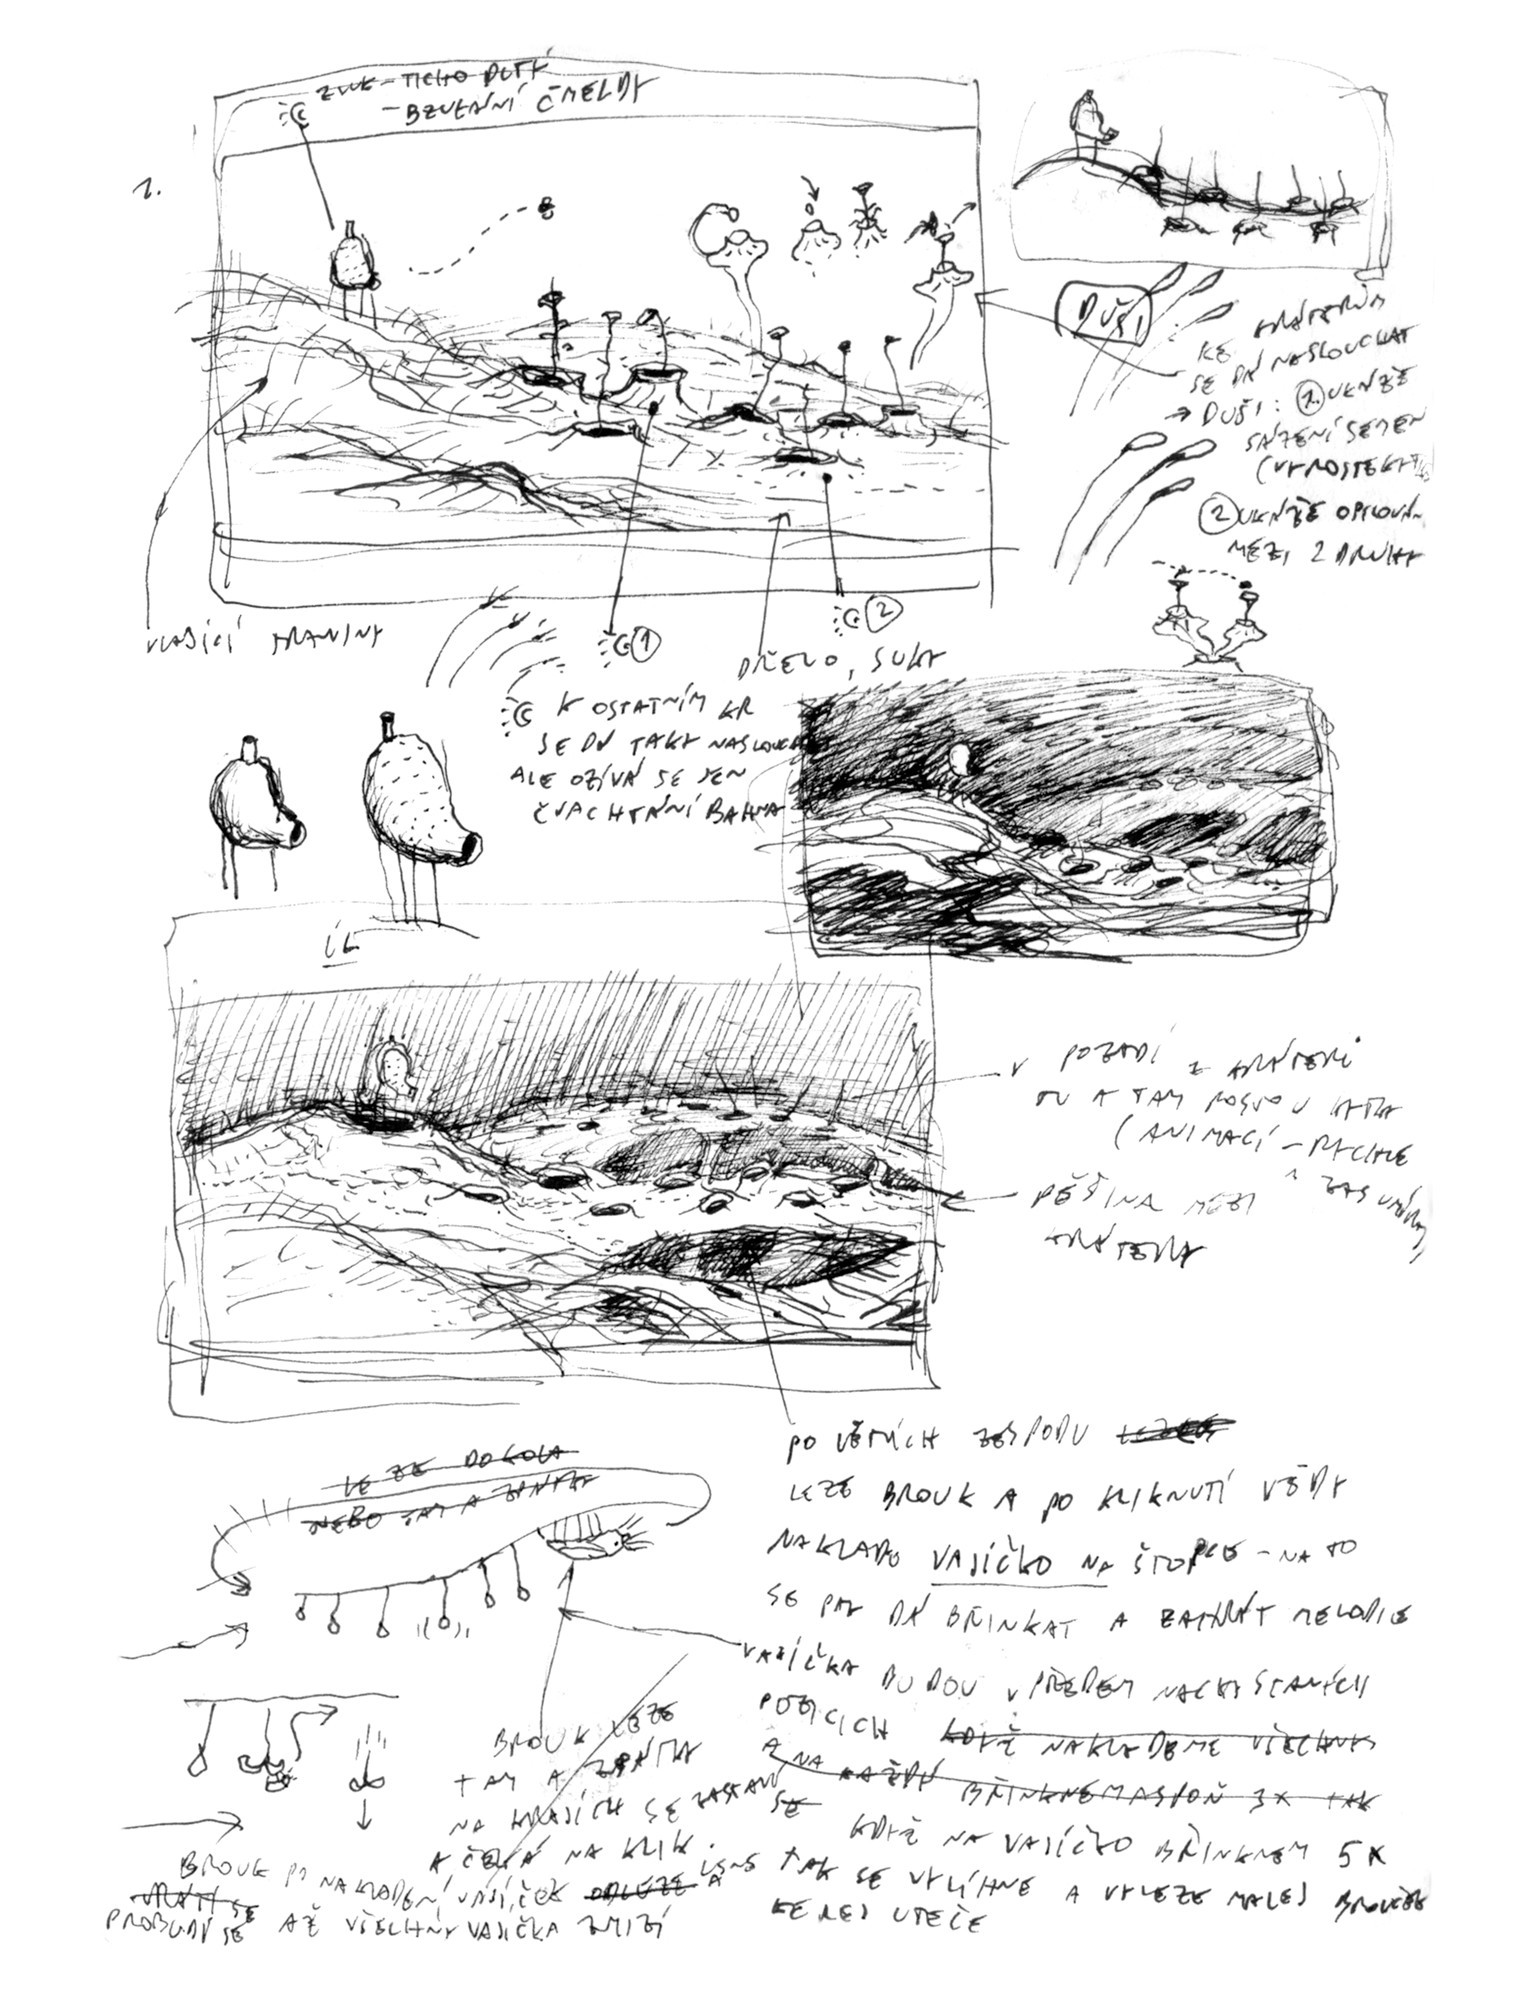 ZVUK - TICHO DUTÝ
- BZUČENÍ ČMELDY
1.
DUŠI
KE KRÁTERŮM
SE DÁ NASLOUCHAT
→ DUŠI: 1. UKÁŽE
SÁZENÍ SEMEN
2 UKÁŽE OPYLOVÁN
MEZI 2 DRUHY
VLAJÍCÍ TRAVINY
1
2
DŘEVO, SUKY
K OSTATNÍM KR
SE DÁ TAKY NASLOUCHAT
ALE OZÍVÁ SE JEN
ČVACHTÁNÍ BAHNA
ÚL
V POZADÍ Z KRÁTERŮ
TU A TAM ROSTOU
(ANIMACÍ - RYCHLE
ZAS UMÍRAJ)
PĚŠINA MEZI
KRÁTERY
PO VĚTVÍCH ZESPODU
LEZE BROUK A PO KLIKNUTÍ VŽDY
NAKLADE VAJÍČKO NA ŠTOPCE - NA TO
SE PAK DÁ BŘINKAT A ZAHRÁT MELODIE
VAJÍČKA BUDOU V PŘEDEM NACHYSTANÝCH
POZICÍCH KDYŽ NAKLADEME VŠECHNY
A NA KAŽDÝ BŘINKNEM ASPOŇ 3X TAK
SE KDYŽ NA VAJÍČKO BŘINKNEM 5X
TAK SE VYLÍHNE A VYLEZE MALEJ BROUČEK
KEREJ UTEČE
LEZE DOKOLA
NEBO TAM A ZPÁTKY
BROUK LEZE
TAM A ZPÁTKY
NA KRAJÍCH SE ZASTAVÍ
A ČEKÁ NA KLIK.
BROUK PO NAKLADENÍ VAJÍČEK ODLEZE USNE A
VRÁTÍ SE
PROBUDÍ SE AŽ VŠECHNY VAJÍČKA ZMIZÍ